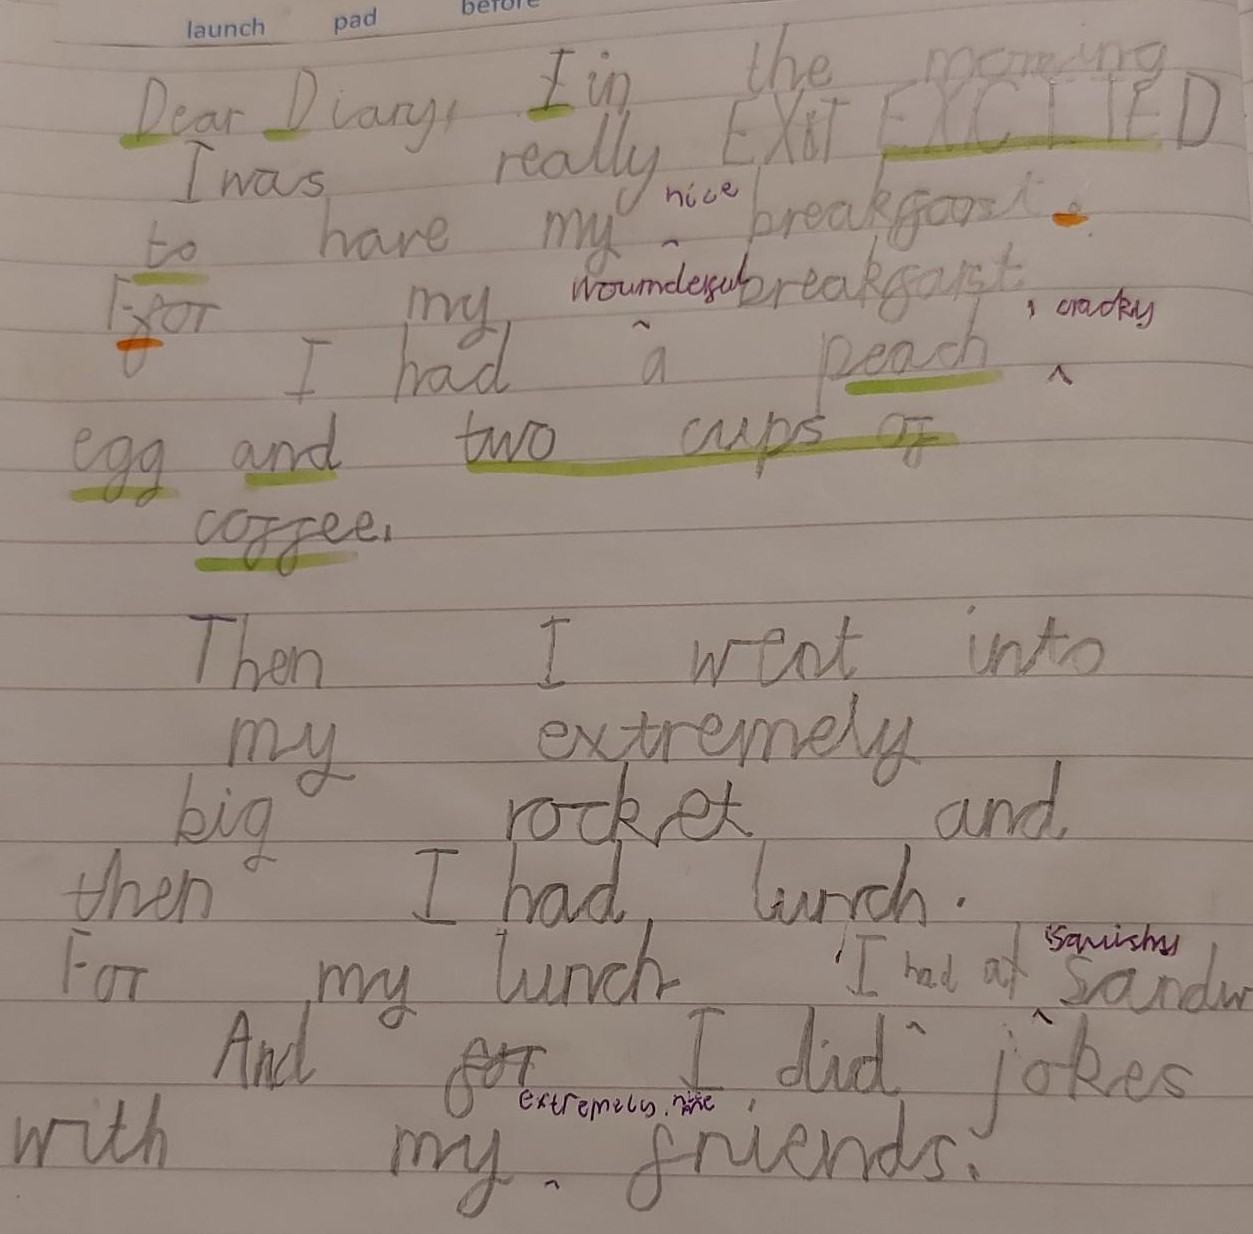 launch pad before
Dear Diary, I in the morning
I was really EXIT EXCITED
to have my nice breakfast.
For my woumdeful breakfast
I had a peach, cracky
egg and two cups of
coffee.
Then I went into
my extremely
big rocket and
then I had lunch.
For my lunch I had a squishy Sandw
And for I did jokes
with my extremely nice friends.